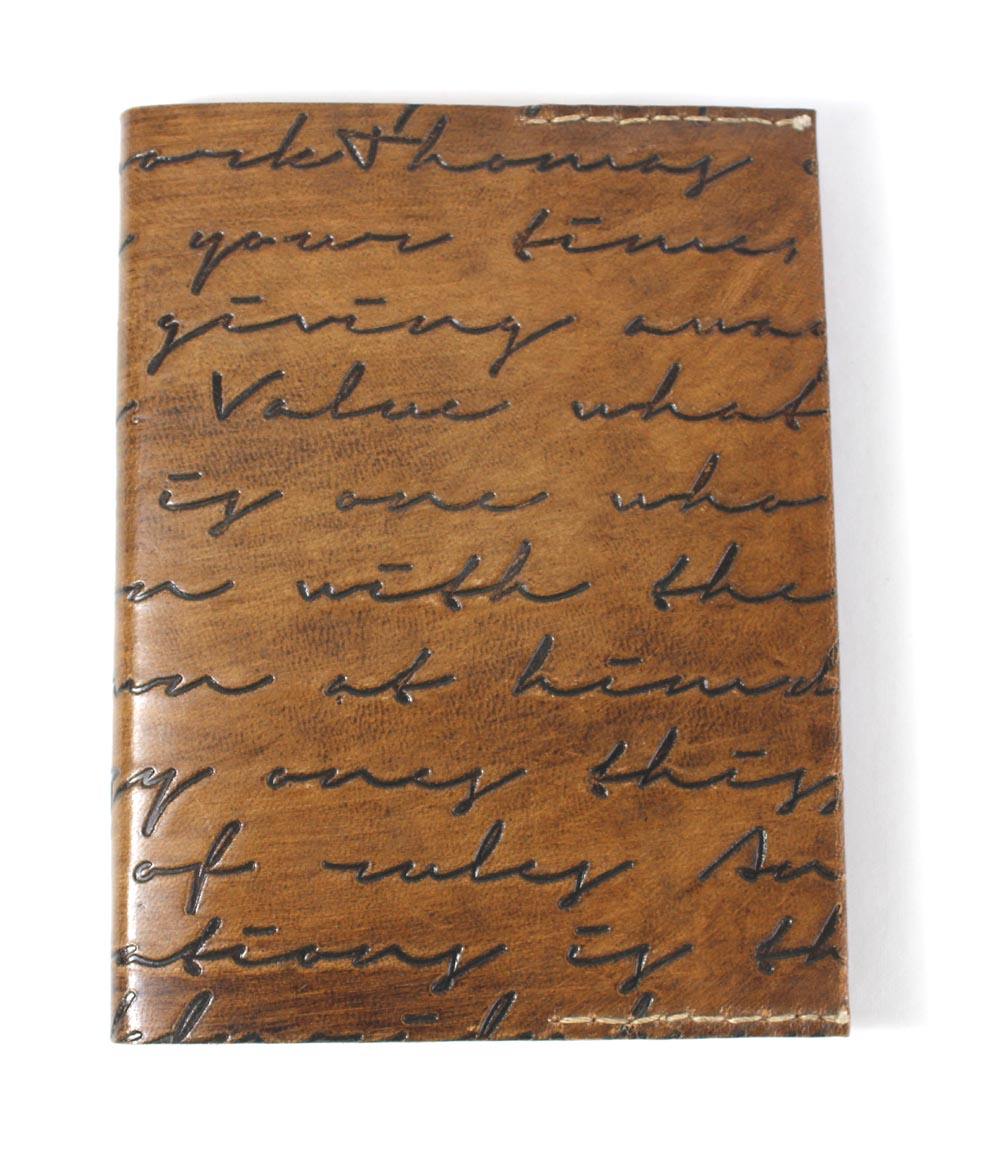 ork Thomas
your times
giving away
Value what
is one who
n with the
wn at himd
zy ones this
of rules Su
ations is th